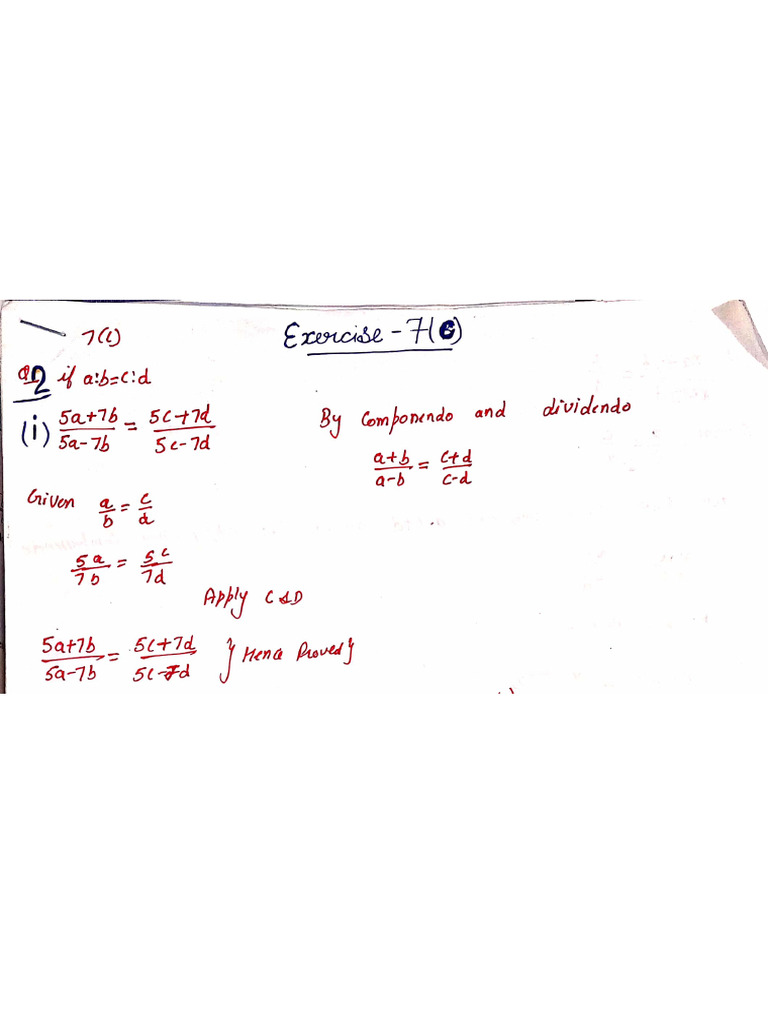 7(C)
Exercise - 7(C)
Q 2 if a:b=c:d
(i) 5a+7b/5a-7b = 5c+7d/5c-7d
By Componendo and dividendo
a+b/a-b = c+d/c-d
Given a/b = c/d
5a/7b = 5c/7d
Apply C&D
5a+7b/5a-7b = 5c+7d/5c-7d } Hence Proved }